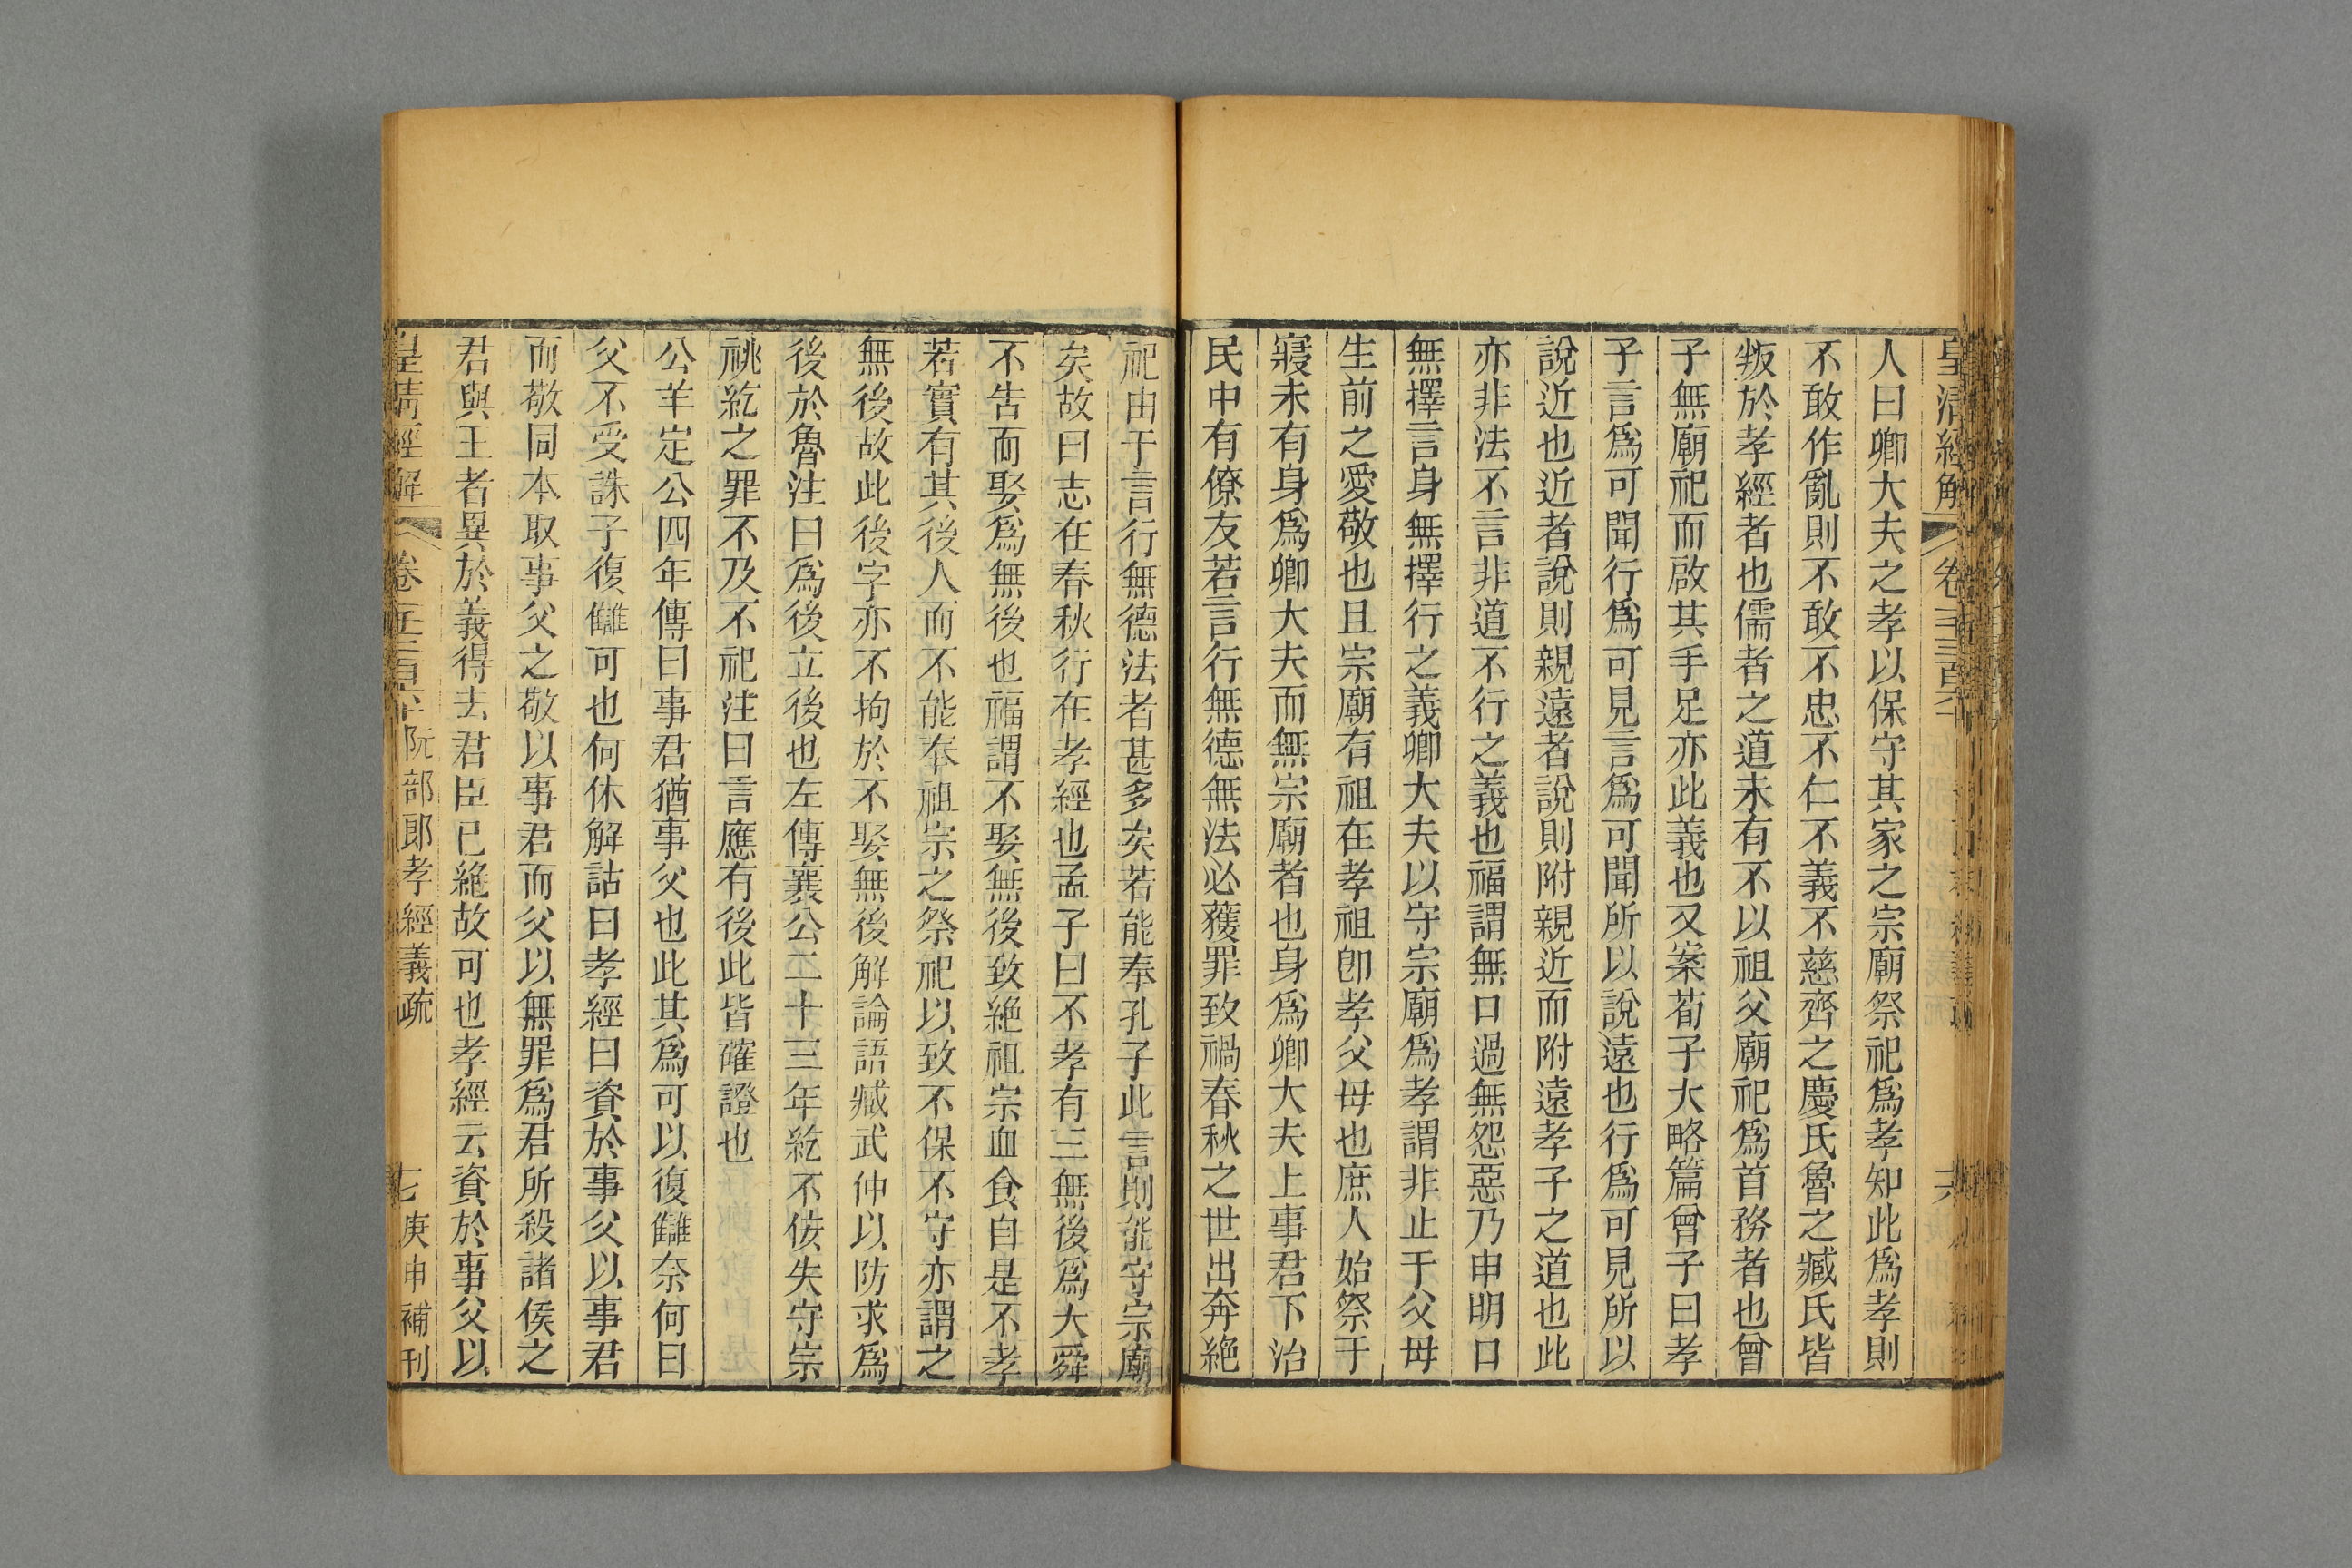 皇清經解 卷 六
人曰卿大夫之孝以保守其家之宗廟祭祀爲孝知此爲孝則
不敢作亂則不敢不忠不仁不義不慈齊之慶氏魯之臧氏皆
叛於孝經者也儒者之道未有不以祖父廟祀爲首務者也曾
子無廟祀而啟其手足亦此義也又案荀子大略篇曾子曰孝
子言爲可聞行爲可見言爲可聞所以說遠也行爲可見所以
說近也近者說則親遠者說則附親近而附遠孝子之道也此
亦非法不言非道不行之義也福謂無口過無怨惡乃申明口
無擇言身無擇行之義卿大夫以守宗廟爲孝謂非止于父母
生前之愛敬也且宗廟有祖在孝祖卽孝父母也庶人始祭于
寢未有身爲卿大夫而無宗廟者也身爲卿大夫上事君下治
民中有僚友若言行無德無法必獲罪致禍春秋之世出奔絶
祀由于言行無德法者甚多矣若能奉孔子此言則能守宗廟
矣故曰志在春秋行在孝經也孟子曰不孝有三無後爲大舜
不告而娶爲無後也福謂不娶無後致絶祖宗血食自是不孝
若實有其後人而不能奉祖宗之祭祀以致不保不守亦謂之
無後故此後字亦不拘於不娶無後解論語臧武仲以防求爲
後於魯注曰爲後立後也左傳襄公二十三年紇不佞失守宗
祧紇之罪不及不祀注曰言應有後此皆確證也
公羊定公四年傳曰事君猶事父也此其爲可以復讎奈何曰
父不受誅子復讎可也何休解詁曰孝經曰資於事父以事君
而敬同本取事父之敬以事君而父以無罪爲君所殺諸侯之
君與王者異於義得去君臣已絶故可也孝經云資於事父以
皇清經解 卷 阮部郎孝經義疏 七 庚申補刊